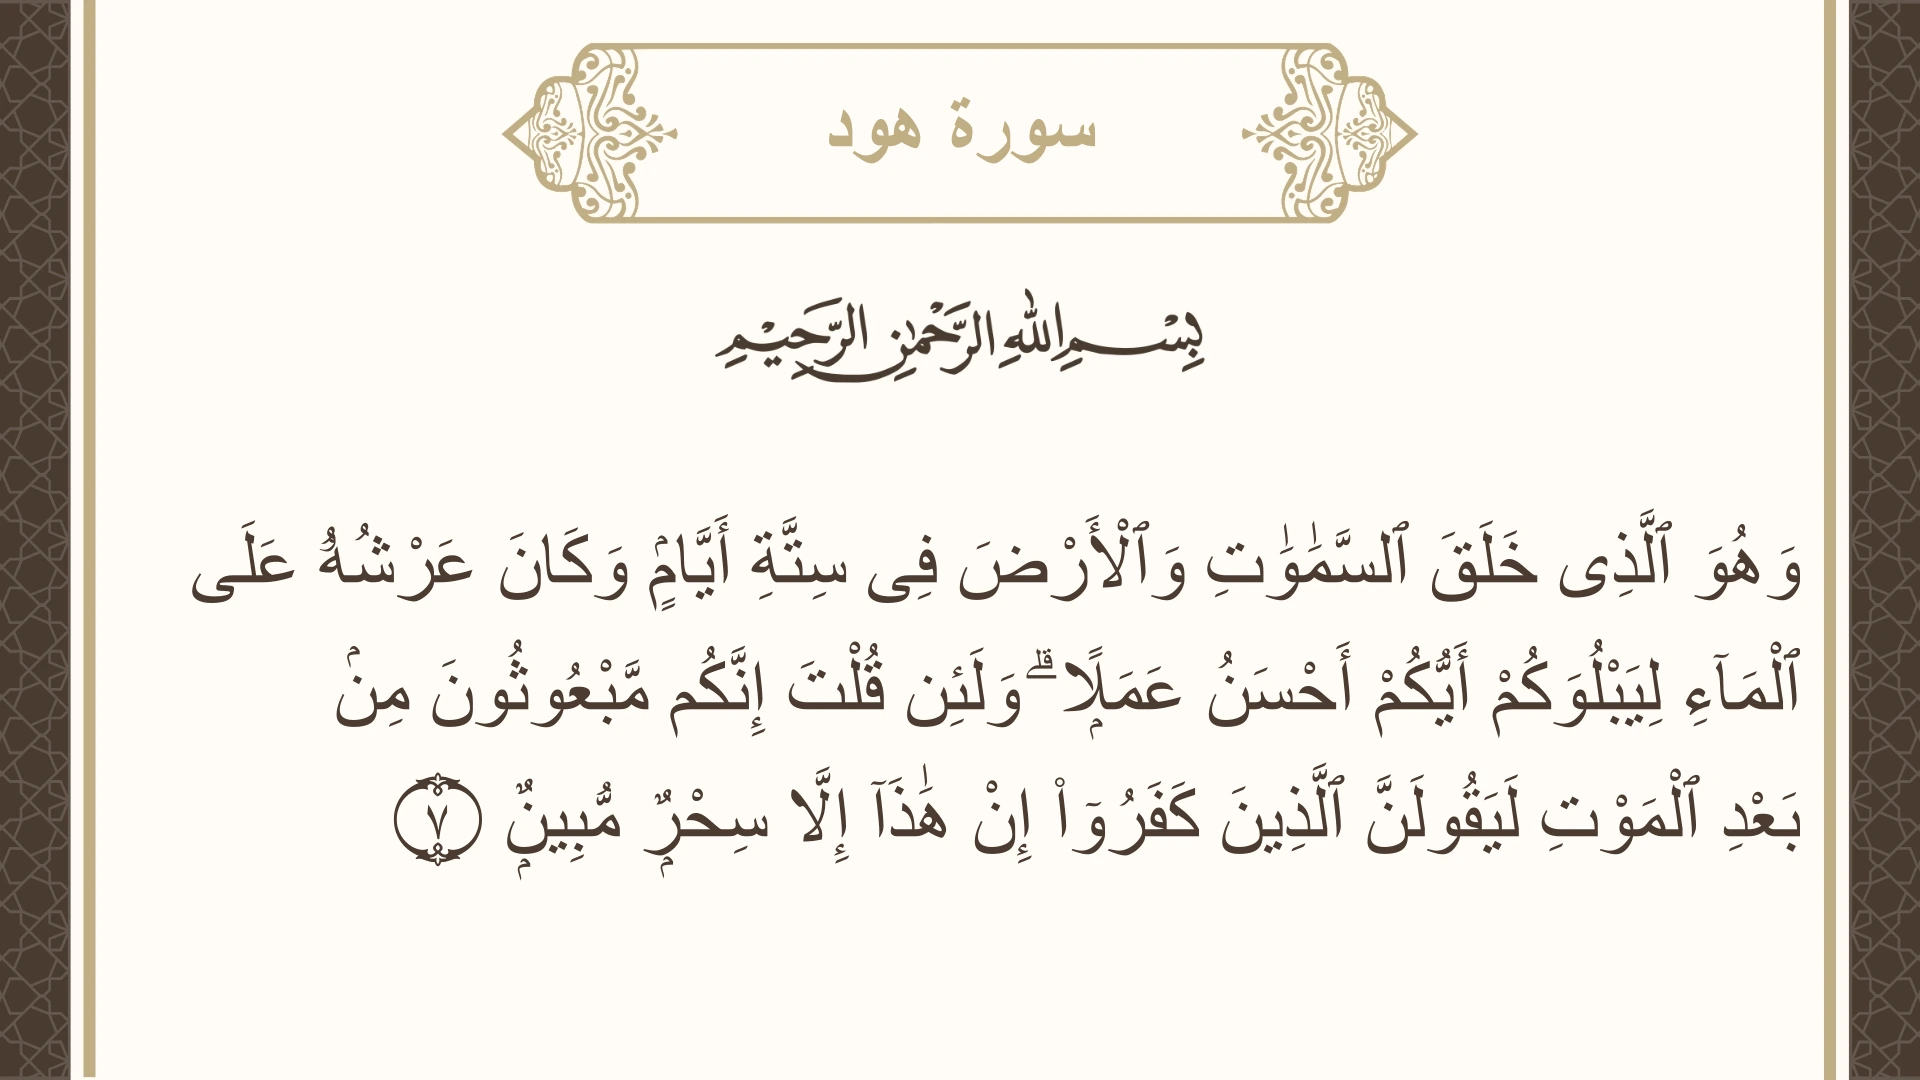 سورة هود
بِسْمِ اللهِ الرَّحْمٰنِ الرَّحِيْمِ
وَهُوَ ٱلَّذِى خَلَقَ ٱلسَّمَٰوَٰتِ وَٱلْأَرْضَ فِى سِتَّةِ أَيَّامٍۢ وَكَانَ عَرْشُهُۥ عَلَى
ٱلْمَآءِ لِيَبْلُوَكُمْ أَيُّكُمْ أَحْسَنُ عَمَلًۭا ۗ وَلَئِن قُلْتَ إِنَّكُم مَّبْعُوثُونَ مِنۢ
بَعْدِ ٱلْمَوْتِ لَيَقُولَنَّ ٱلَّذِينَ كَفَرُوٓا۟ إِنْ هَٰذَآ إِلَّا سِحْرٌۭ مُّبِينٌۭ ٧